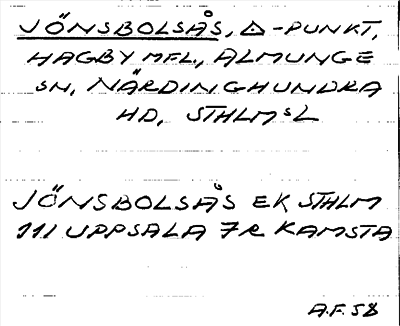 JÖNSBOLSÅS, △-PUNKT,
HAGBY MFL., ALMUNGE
SN, NÄRDINGHUNDRA
HD, STHLMS L
JÖNSBOLSÅS EK STHLM
111 UPPSALA 7R KAMSTA
A.F. 58